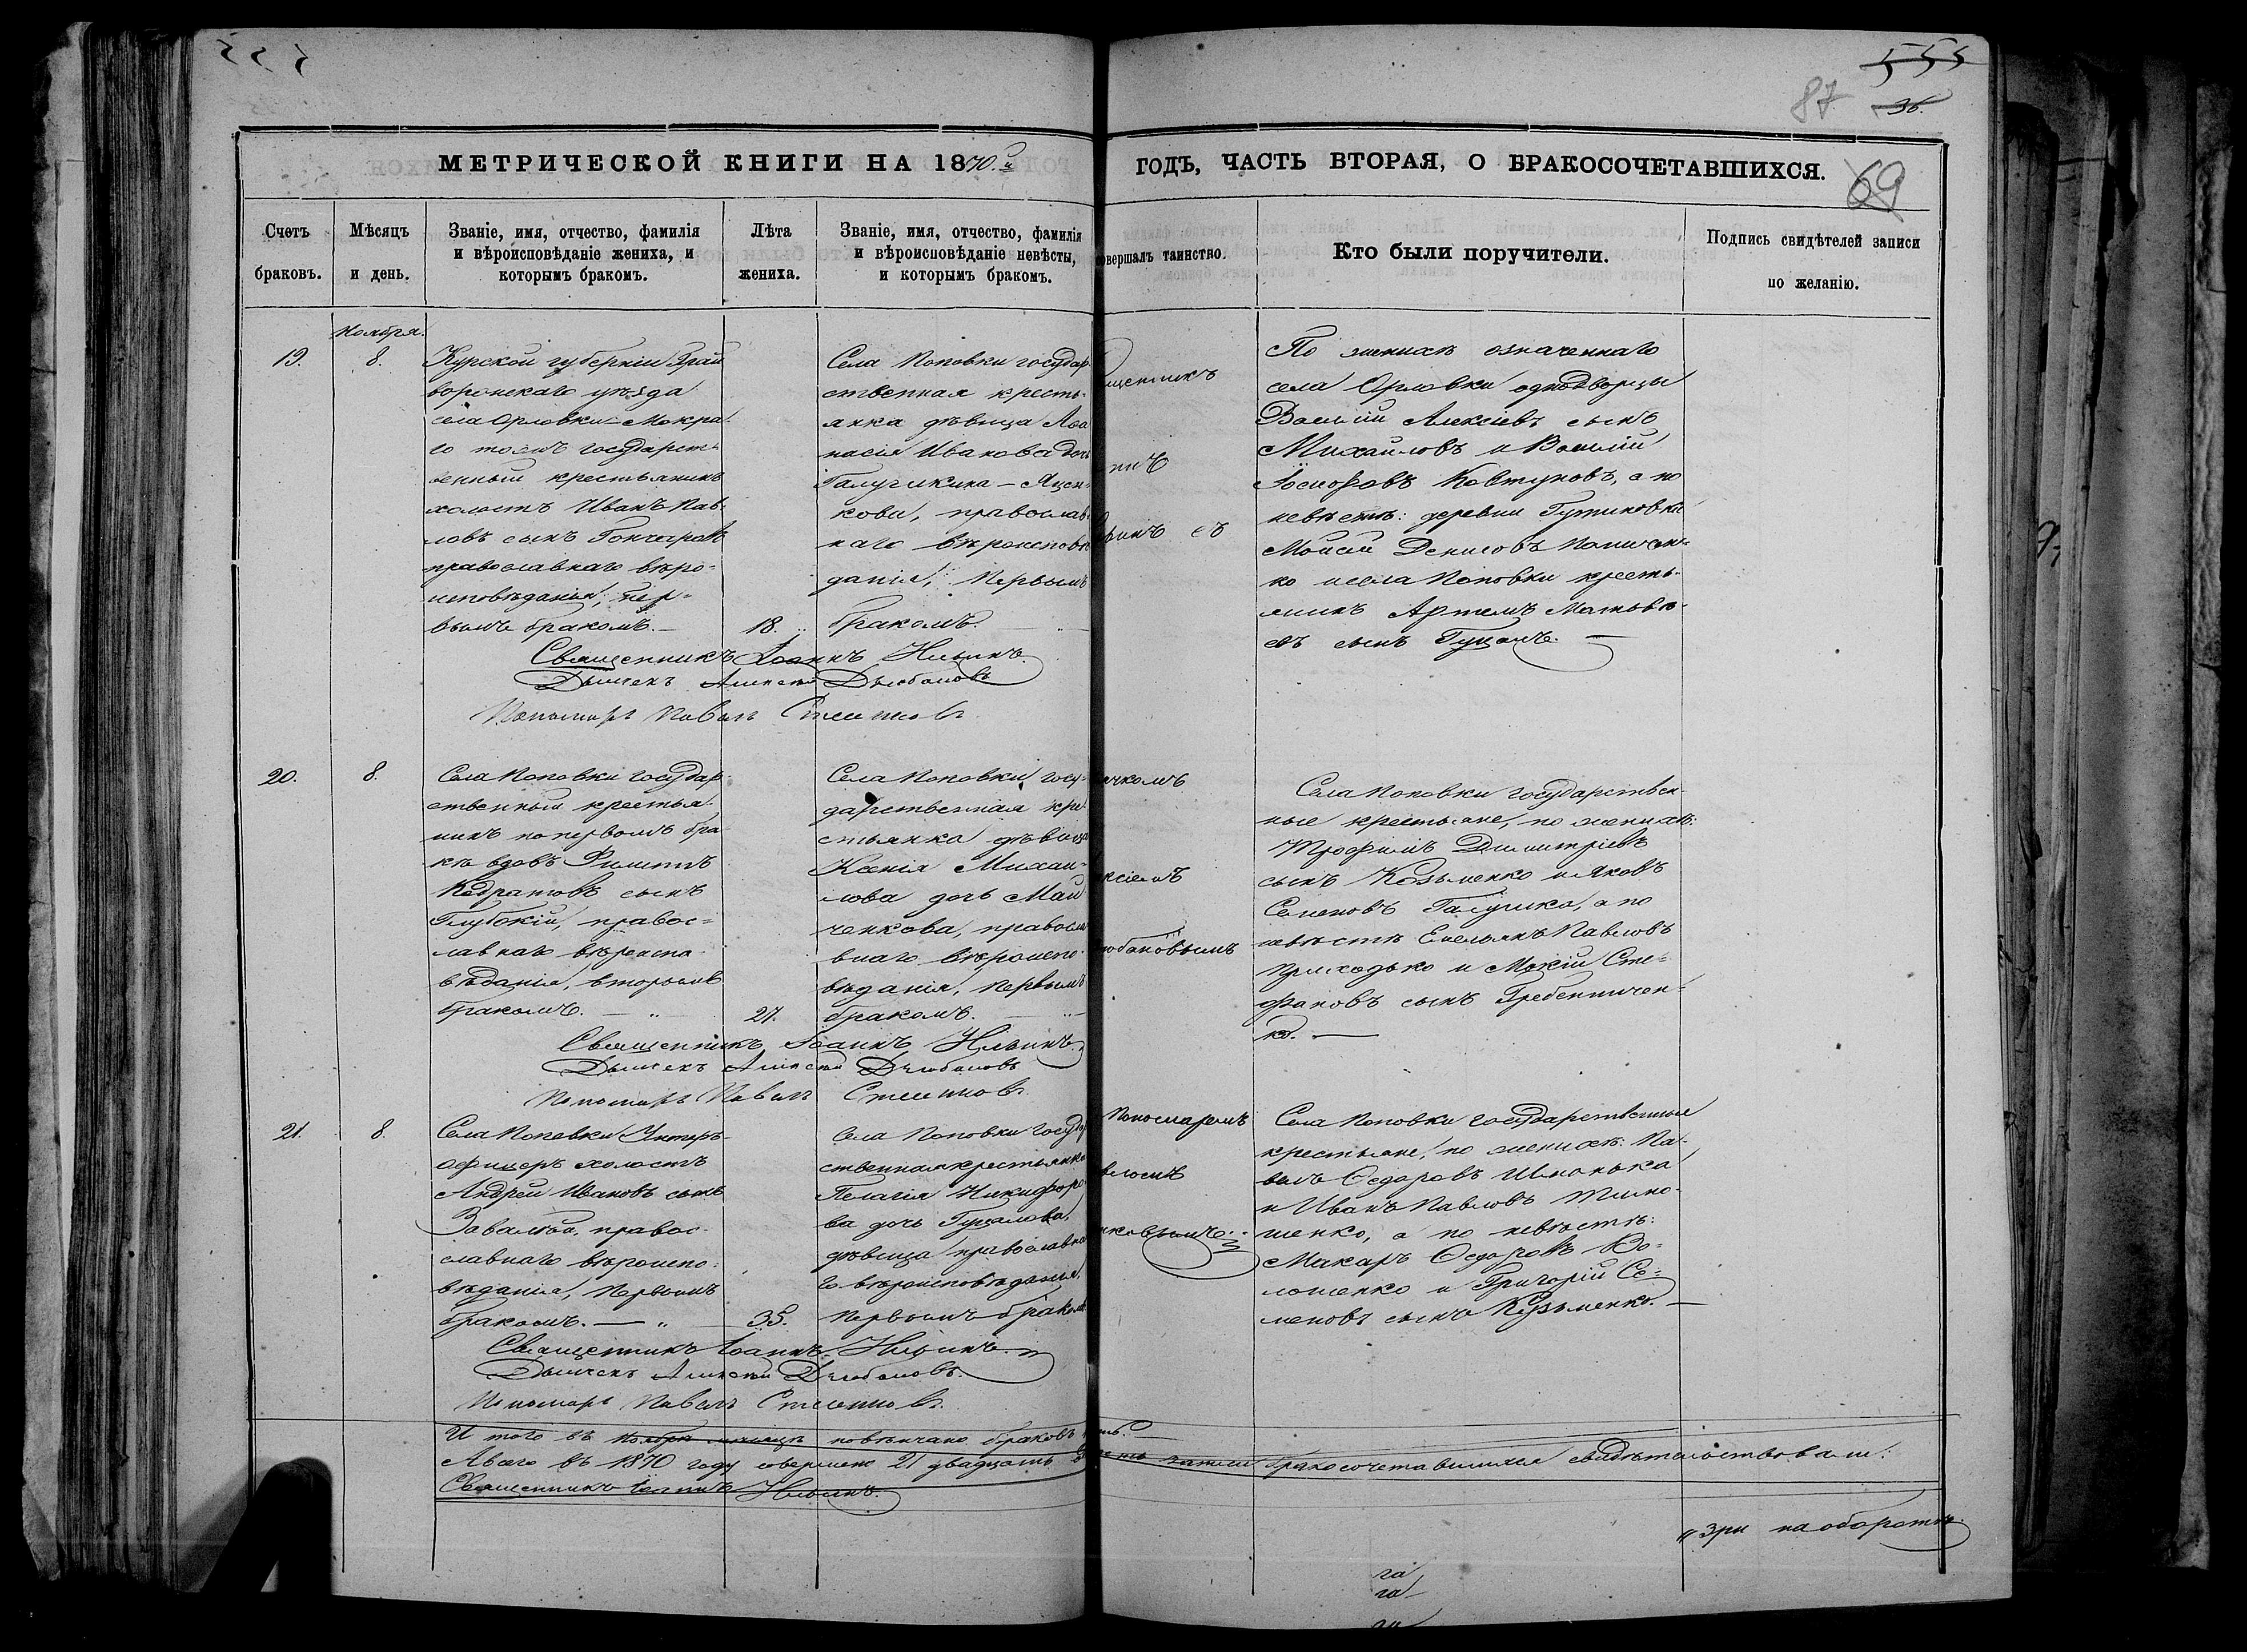 555
87
36.
69
МЕТРИЧЕСКОЙ КНИГИ НА 1870.й
ГОДЪ, ЧАСТЬ ВТОРАЯ, О БРАКОСОЧЕТАВШИХСЯ.
Счетъ браковъ.
Мѣсяцъ и день.
Званіе, имя, отчество, фамилія и вѣроисповѣданіе жениха, и которымъ бракомъ.
Лѣта жениха.
Званіе, имя, отчество, фамилія и вѣроисповѣданіе невѣсты, и которымъ бракомъ.
овершалъ таинство.
Кто были поручители.
Подпись свидѣтелей записи по желанію.
Ноября.
19.
8.
Курской губерніи Грай
воронскаго уѣзда
села Орловки Мокра
го тожъ государст-
венный крестьянинъ
холостъ Иванъ Пав-
ловъ сынъ Гончаровъ
православнаго вѣро-
исповѣданія, пер-
вымъ бракомъ.
18.
Села Поповки государ-
ственная кресть-
янка дѣвица Аѳа
насія Иванова дочь
Галушкина - Яцен-
кова, православ-
наго вѣроисповѣ
данія, первымъ
бракомъ.
щенникъ
По женихѣ означеннаго
села Орловки однодворцы
Василій Алексіевъ сынъ
Михайловъ и Василій
Іосифовъ Ковтуновъ, а по
невѣстѣ: деревни
Моисей Денисовъ
ко и села Поповки кресть-
янинъ Артемъ Матвѣ-
евъ сынъ Гуцалъ.
Священникъ Іоаннъ Ильинъ.
Дьячекъ Алексій
Пономарь Павелъ
20.
8.
Села Поповки государ-
ственный крестья-
нинъ по первомъ бра-
кѣ вдовъ Филиппъ
Кодратовъ сынъ
Глубокій, правос-
лавнаго вѣроиспо-
вѣданія, вторымъ
бракомъ.
27.
Села Поповки госу-
дарственная кре-
стьянка дѣвица
Ксенія Михаи-
лова дочь Май
ченкова, правосла
внаго вѣроиспо-
вѣданія, первымъ
бракомъ.
чкомъ
ксіемъ
юбановымъ
Села Поповки государствен-
ные крестьяне, по женихѣ:
Трофимъ Димитріевъ
сынъ Козьменко и Яковъ
Семеновъ Галушка, а по
невѣстѣ Емельянъ Павловъ
Приходько и Мокій Сте-
фановъ сынъ Гребенничен-
ко.
Священникъ Іоаннъ Ильинъ.
Дьячекъ Алексій
Пономарь Павелъ
21.
8.
Села Поповки Унтеръ-
офицеръ холостъ
Андрей Ивановъ сынъ
Завалій, правос-
славнаго вѣроиспо-
вѣданія, первымъ
бракомъ.
35.
Села Поповки госуда
ственная крестьянка
Пелагія Никифоро
ва дочь Гуцалова,
дѣвица православна
го вѣроисповѣданія,
первымъ бракомъ
Пономаремъ
вломъ
нковымъ.
Села Поповки государственные
крестьяне, по женихѣ: Па-
велъ Ѳедоровъ Шмонька
и Иванъ Павловъ Тимо-
шенко, а по невѣстѣ:
Макаръ Ѳедоровъ Во-
лошенко и Григорій Се-
меновъ сынъ Кузьменко.
Священникъ Іоаннъ Ильинъ.
Дьячекъ Алексій
Пономарь Павелъ
И того въ Ноябрѣ мѣсяцѣ повѣнчано браковъ
А всего въ 1870 году совершено 21 двадцать
бракосочетавшихся свидѣтельствовали:
Священникъ Іоаннъ Ильинъ.
„Зри на оборотѣ.
га
га